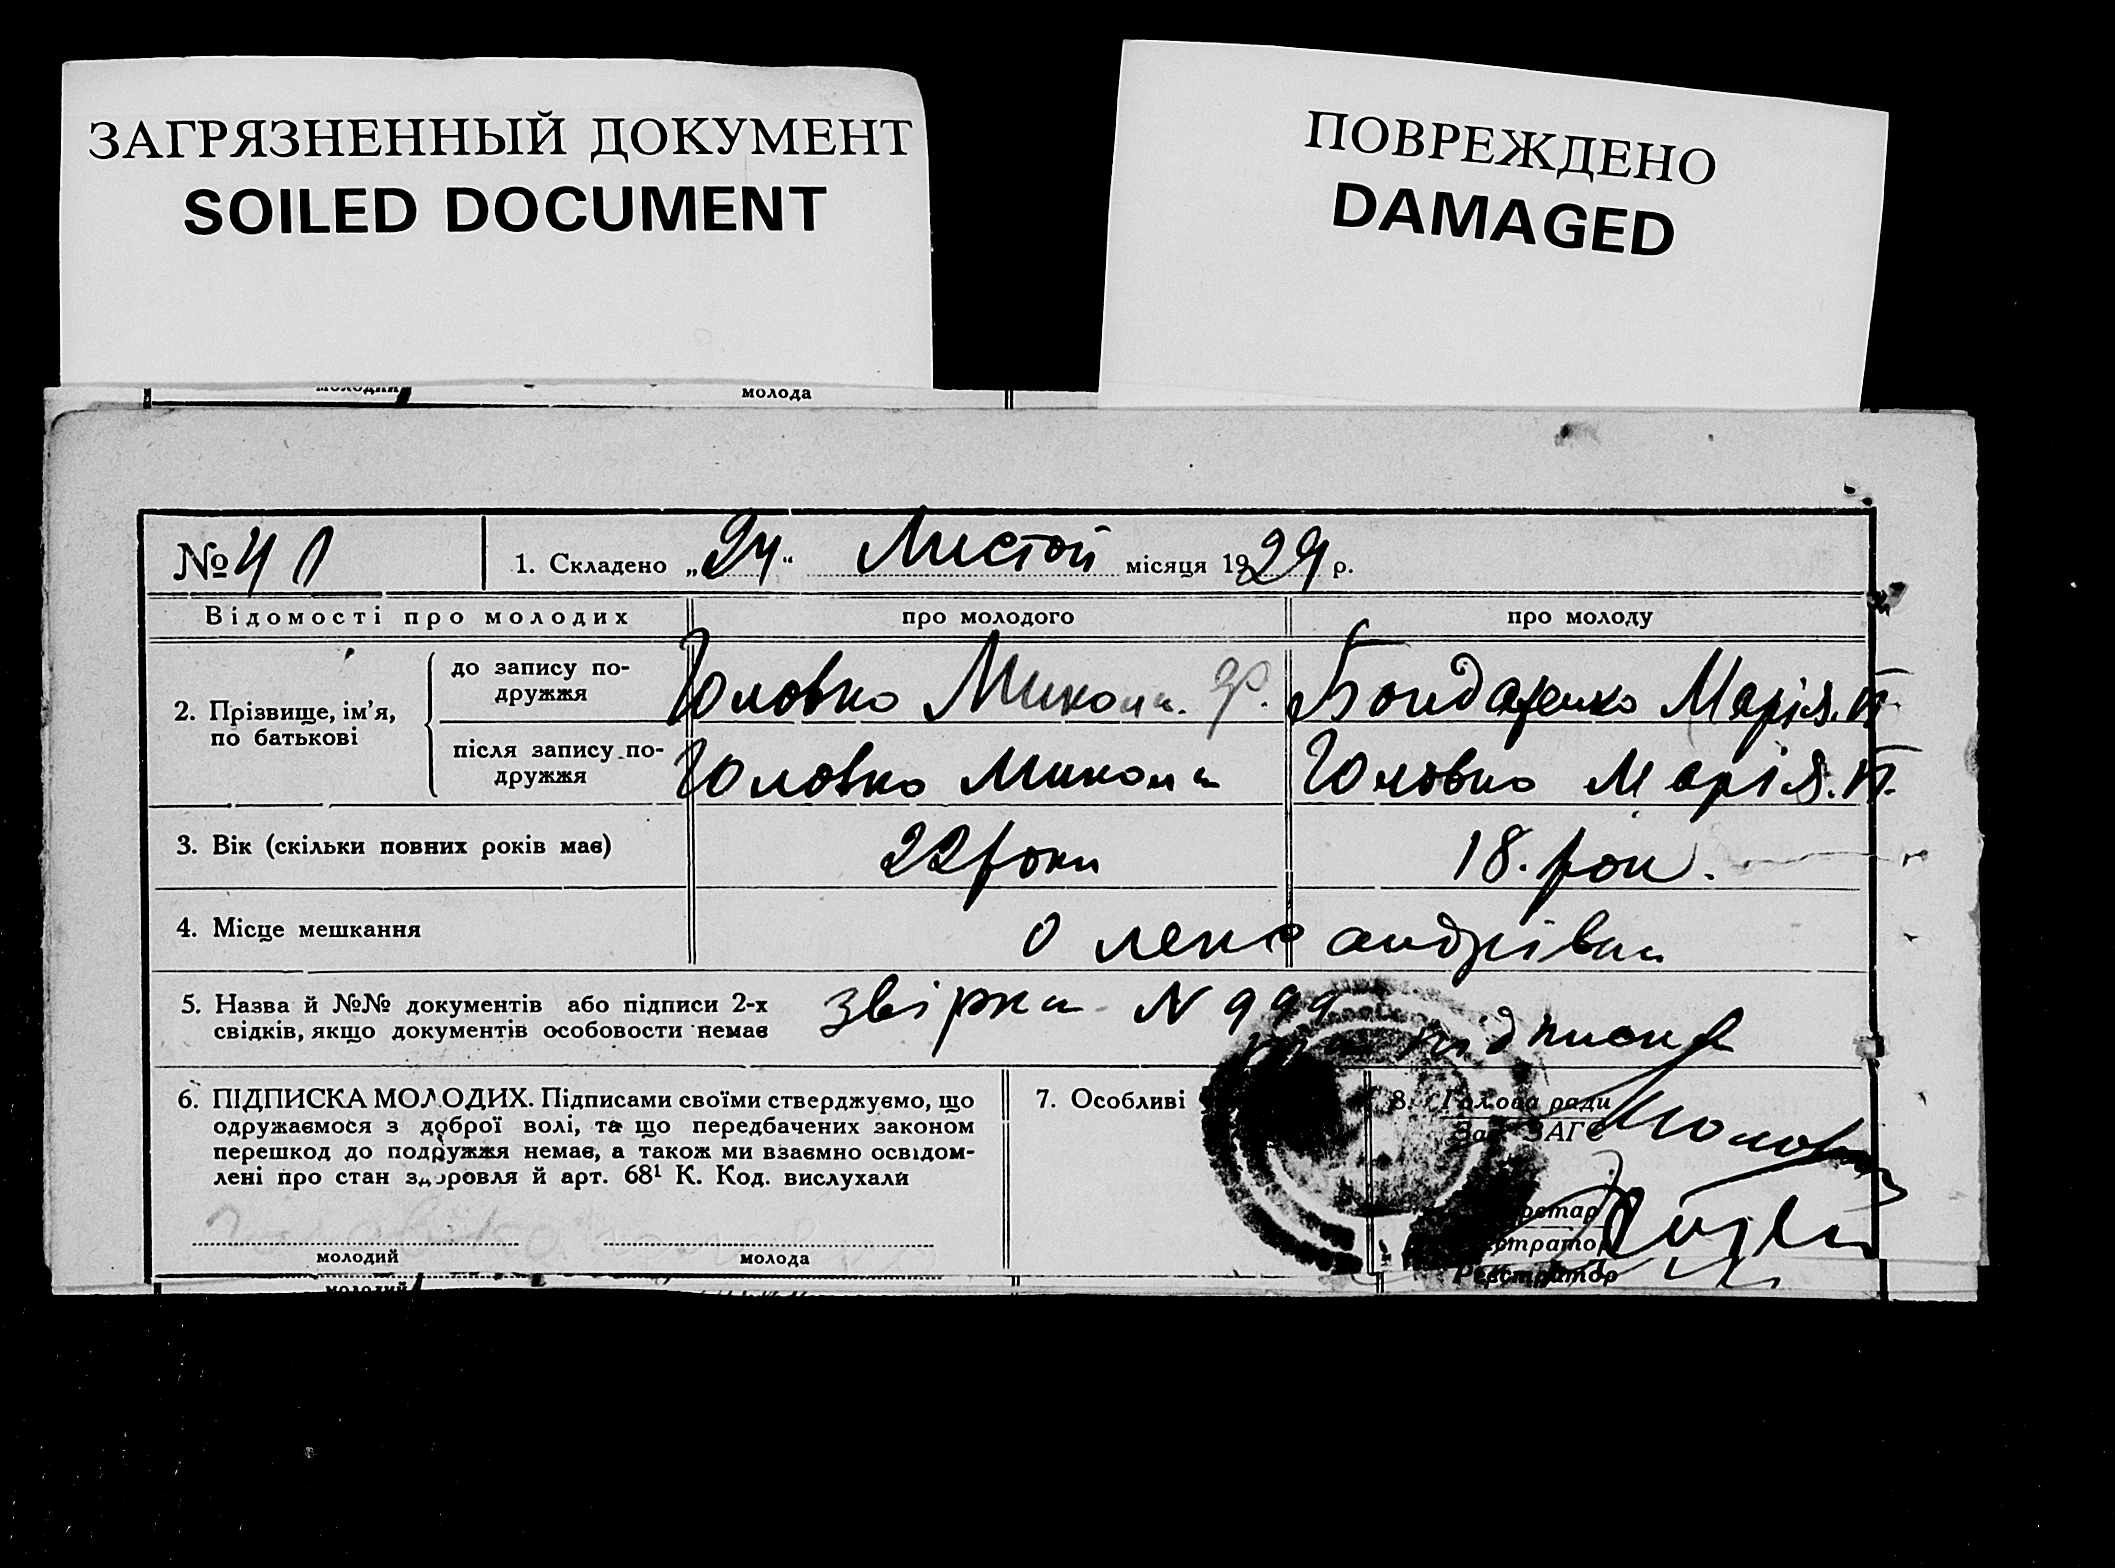 ЗАГРЯЗНЕННЫЙ ДОКУМЕНТ
SOILED DOCUMENT
ПОВРЕЖДЕНО
DAMAGED
молодий молода
№ 41 1. Складено „24“ Листоп місяця 1929 р.
Відомості про молодих про молодого про молоду
2. Прізвище, ім'я, по батькові
до запису подружжя Головко Микола Ф. Бондаренко Марія. П.
після запису подружжя Головко Микола Головко Марія. П.
3. Вік (скільки повних років має) 22 роки 18. рок.
4. Місце мешкання Олександрівка
5. Назва й №№ документів або підписи 2-х звірка N 999
свідків, якщо документів особовости немає підписка
6. ПІДПИСКА МОЛОДИХ. Підписами своїми стверджуємо, що
одружаємося з доброї волі, та що передбачених законом
перешкод до подружжя немає, а також ми взаємно освідом-
лені про стан здоровля й арт. 68¹ К. Код. вислухали
молодий молода
7. Особливі
8. Голова ради
Зав. ЗАГС
Реєстратор
молодий